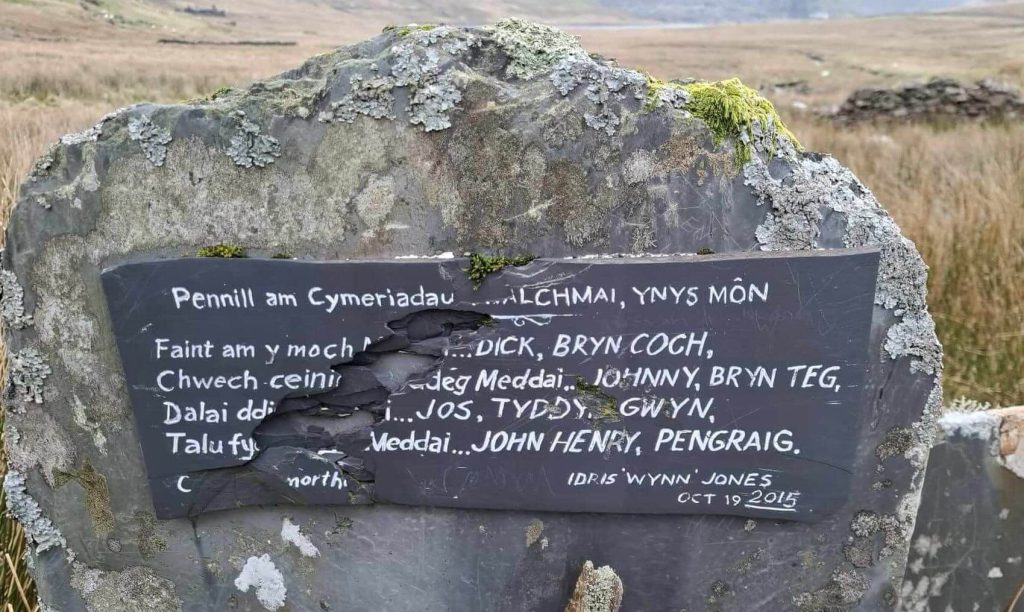 Pennill am Cymeriadau ALCHMAI, YNYS MÔN
Faint am y moch ...DICK, BRYN COCH,
Chwech ceini deg Meddai...JOHNNY, BRYN TEG,
Dalai ddi ...JOS, TYDDYN GWYN,
Talu fy Meddai...JOHN HENRY, PENGRAIG.
IDRIS 'WYNN' JONES
OCT 19 2015